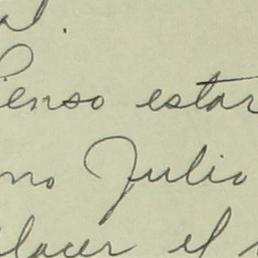 Pienso estar
no Julio
placer el